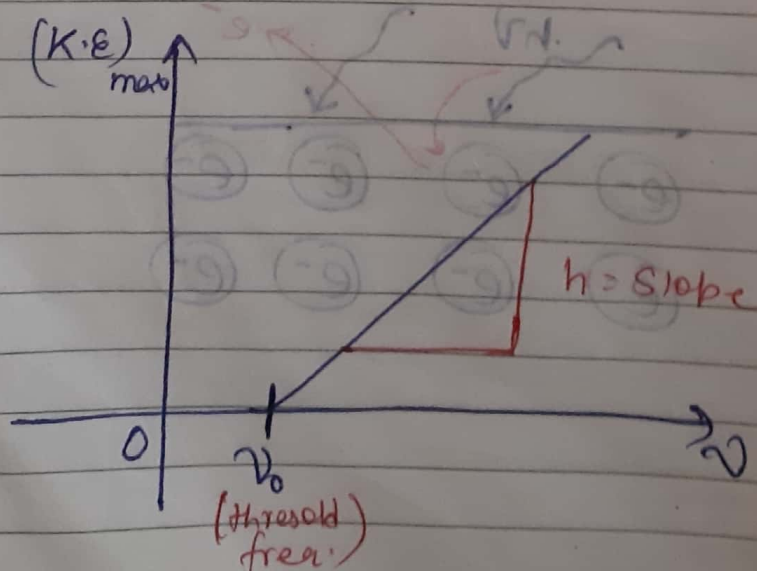 (K.E)max
h = Slope
0
ν₀
ν
(thresold
freq.)